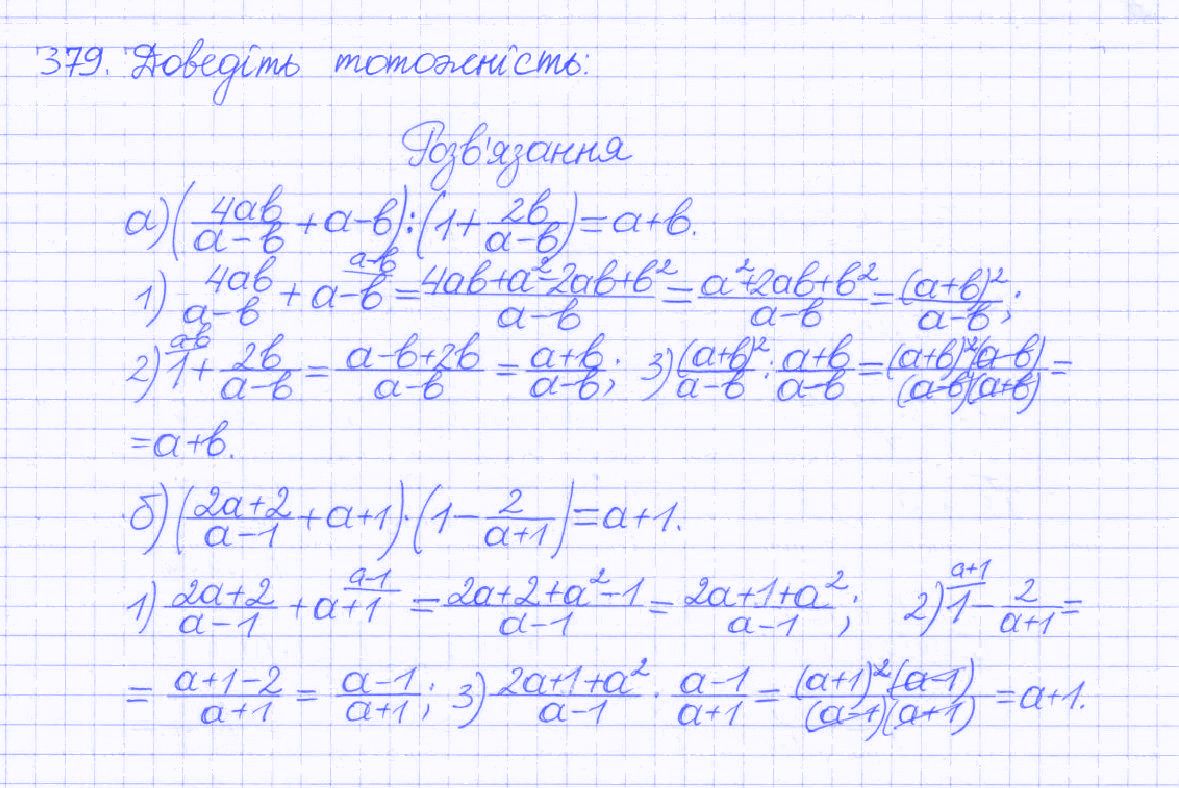 379. Доведіть тотожність:
Розв'язання
а) (4ab/(a-b) + a-b) : (1 + 2b/(a-b)) = a+b.
1) 4ab/(a-b) + a-b^(a-b) = (4ab+a²-2ab+b²)/(a-b) = (a²+2ab+b²)/(a-b) = (a+b)²/(a-b);
2) 1^(a-b) + 2b/(a-b) = (a-b+2b)/(a-b) = (a+b)/(a-b); 3) (a+b)²/(a-b) : (a+b)/(a-b) = (a+b)²(a-b)/((a-b)(a+b)) =
= a+b.
б) ((2a+2)/(a-1) + a+1) · (1 - 2/(a+1)) = a+1.
1) (2a+2)/(a-1) + a+1^(a-1) = (2a+2+a²-1)/(a-1) = (2a+1+a²)/(a-1); 2) 1^(a+1) - 2/(a+1) =
= (a+1-2)/(a+1) = (a-1)/(a+1); 3) (2a+1+a²)/(a-1) · (a-1)/(a+1) = (a+1)²(a-1)/((a-1)(a+1)) = a+1.